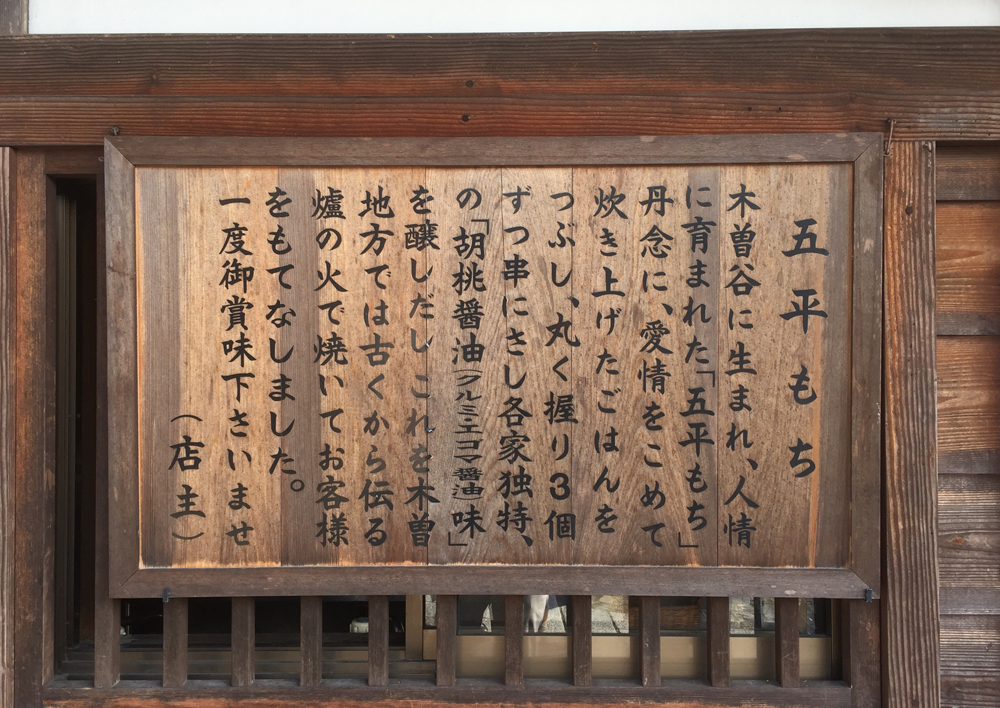 五平もち
木曽谷に生まれ、人情
に育まれた「五平もち」
丹念に、愛情をこめて
炊き上げたごはんを
つぶし、丸く握り3個
ずつ串にさし各家独特、
の「胡桃醤油(クルミ・エゴマ醤油)味」
を醸しだしこれを木曽
地方では古くから伝る
爐の火で焼いてお客様
をもてなしました。
一度御賞味下さいませ
(店主)